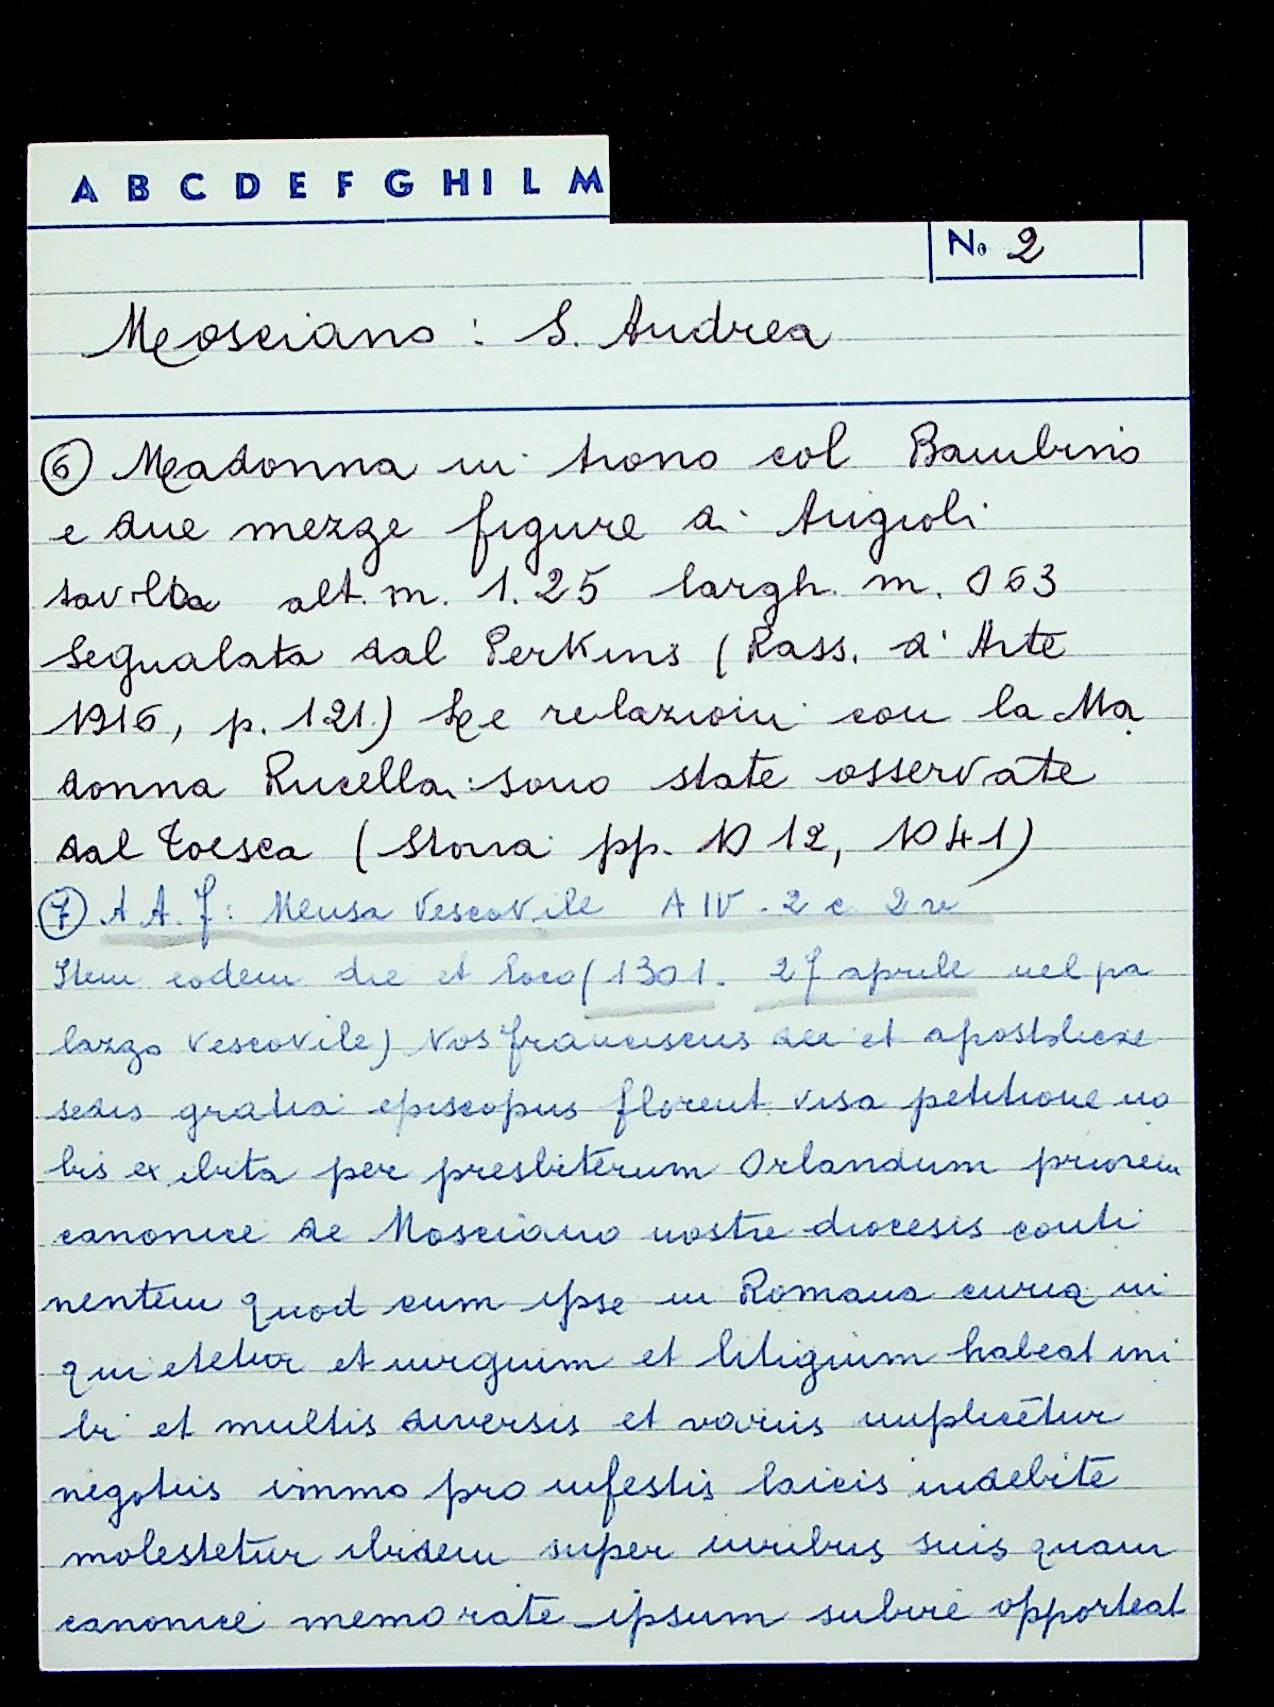 A B C D E F G H I L M
No 2
Mosciano: S. Andrea
⑥ Madonna in trono col Bambino
e due mezze figure di Angioli
tavola alt. m. 1.25 largh. m. 063
Segnalata dal Perkins (Rass. d'Arte
1916, p. 121.) Le relazioni con la Ma
donna Rucellai sono state osservate
dal Toesca (Storia pp. 1012, 1041)
⑦ A A. F: Mensa Vescovile A IV. 2 c 2 rv
Item eodem die et loco (1301. 27 aprile nel pa
lazzo vescovile) Nos franciscus dei et apostolicae
sedis gratia episcopus florent. visa petitione no
bis exibita per presbiterum Orlandum priorem
canonice de Mosciano nostre diocesis conti
nentem quod cum ipse in Romana curia in
quietetur et iurgium et litigium habeat ini
bi et multis diversis et variis implicētur
negotiis immo pro infestis laicis indebite
molestetur ibidem super iuribus suis quam
canonice memorate ipsum subire opporteat